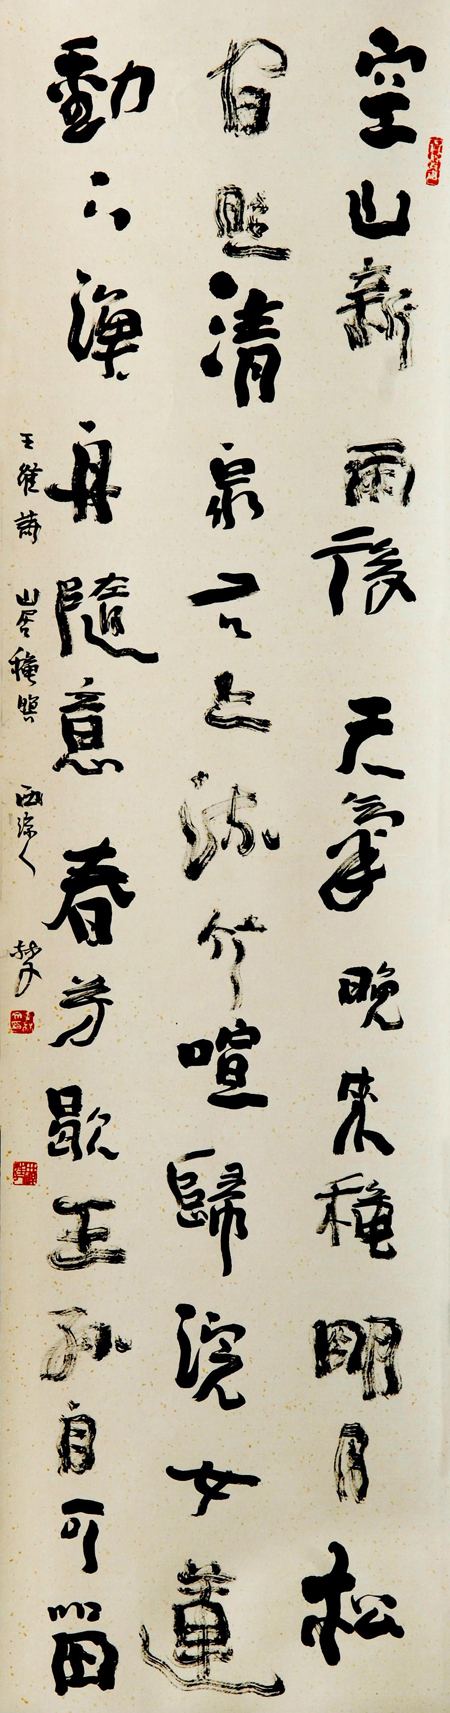 空山新雨後天氣晚來穐明月松
間照清泉石上流竹喧歸浣女蓮
動下漁舟隨意春芳歇王孫自可留
王維詩山居穐暝